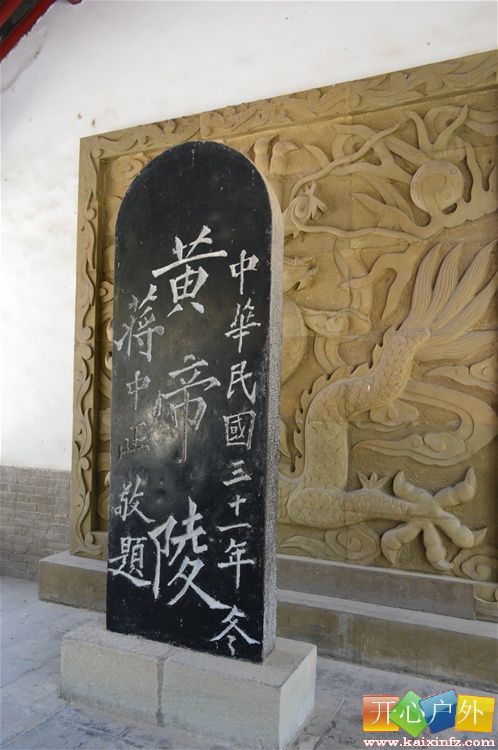 中華民國三十一年冬
黃帝陵
蔣中正敬題
开心户外
www.kaixinfz.com